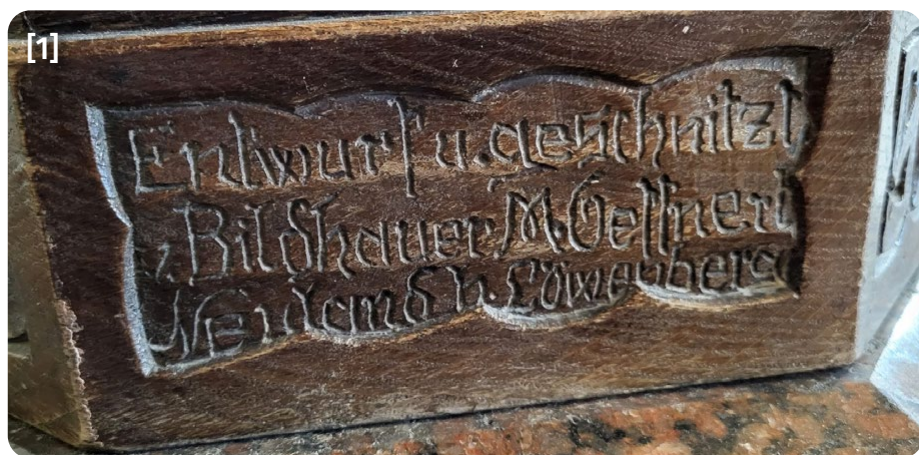 [1]
Entwurf u. geschnitzt
v. Bildhauer M. Gessnert
Neuland b. Löwenberg